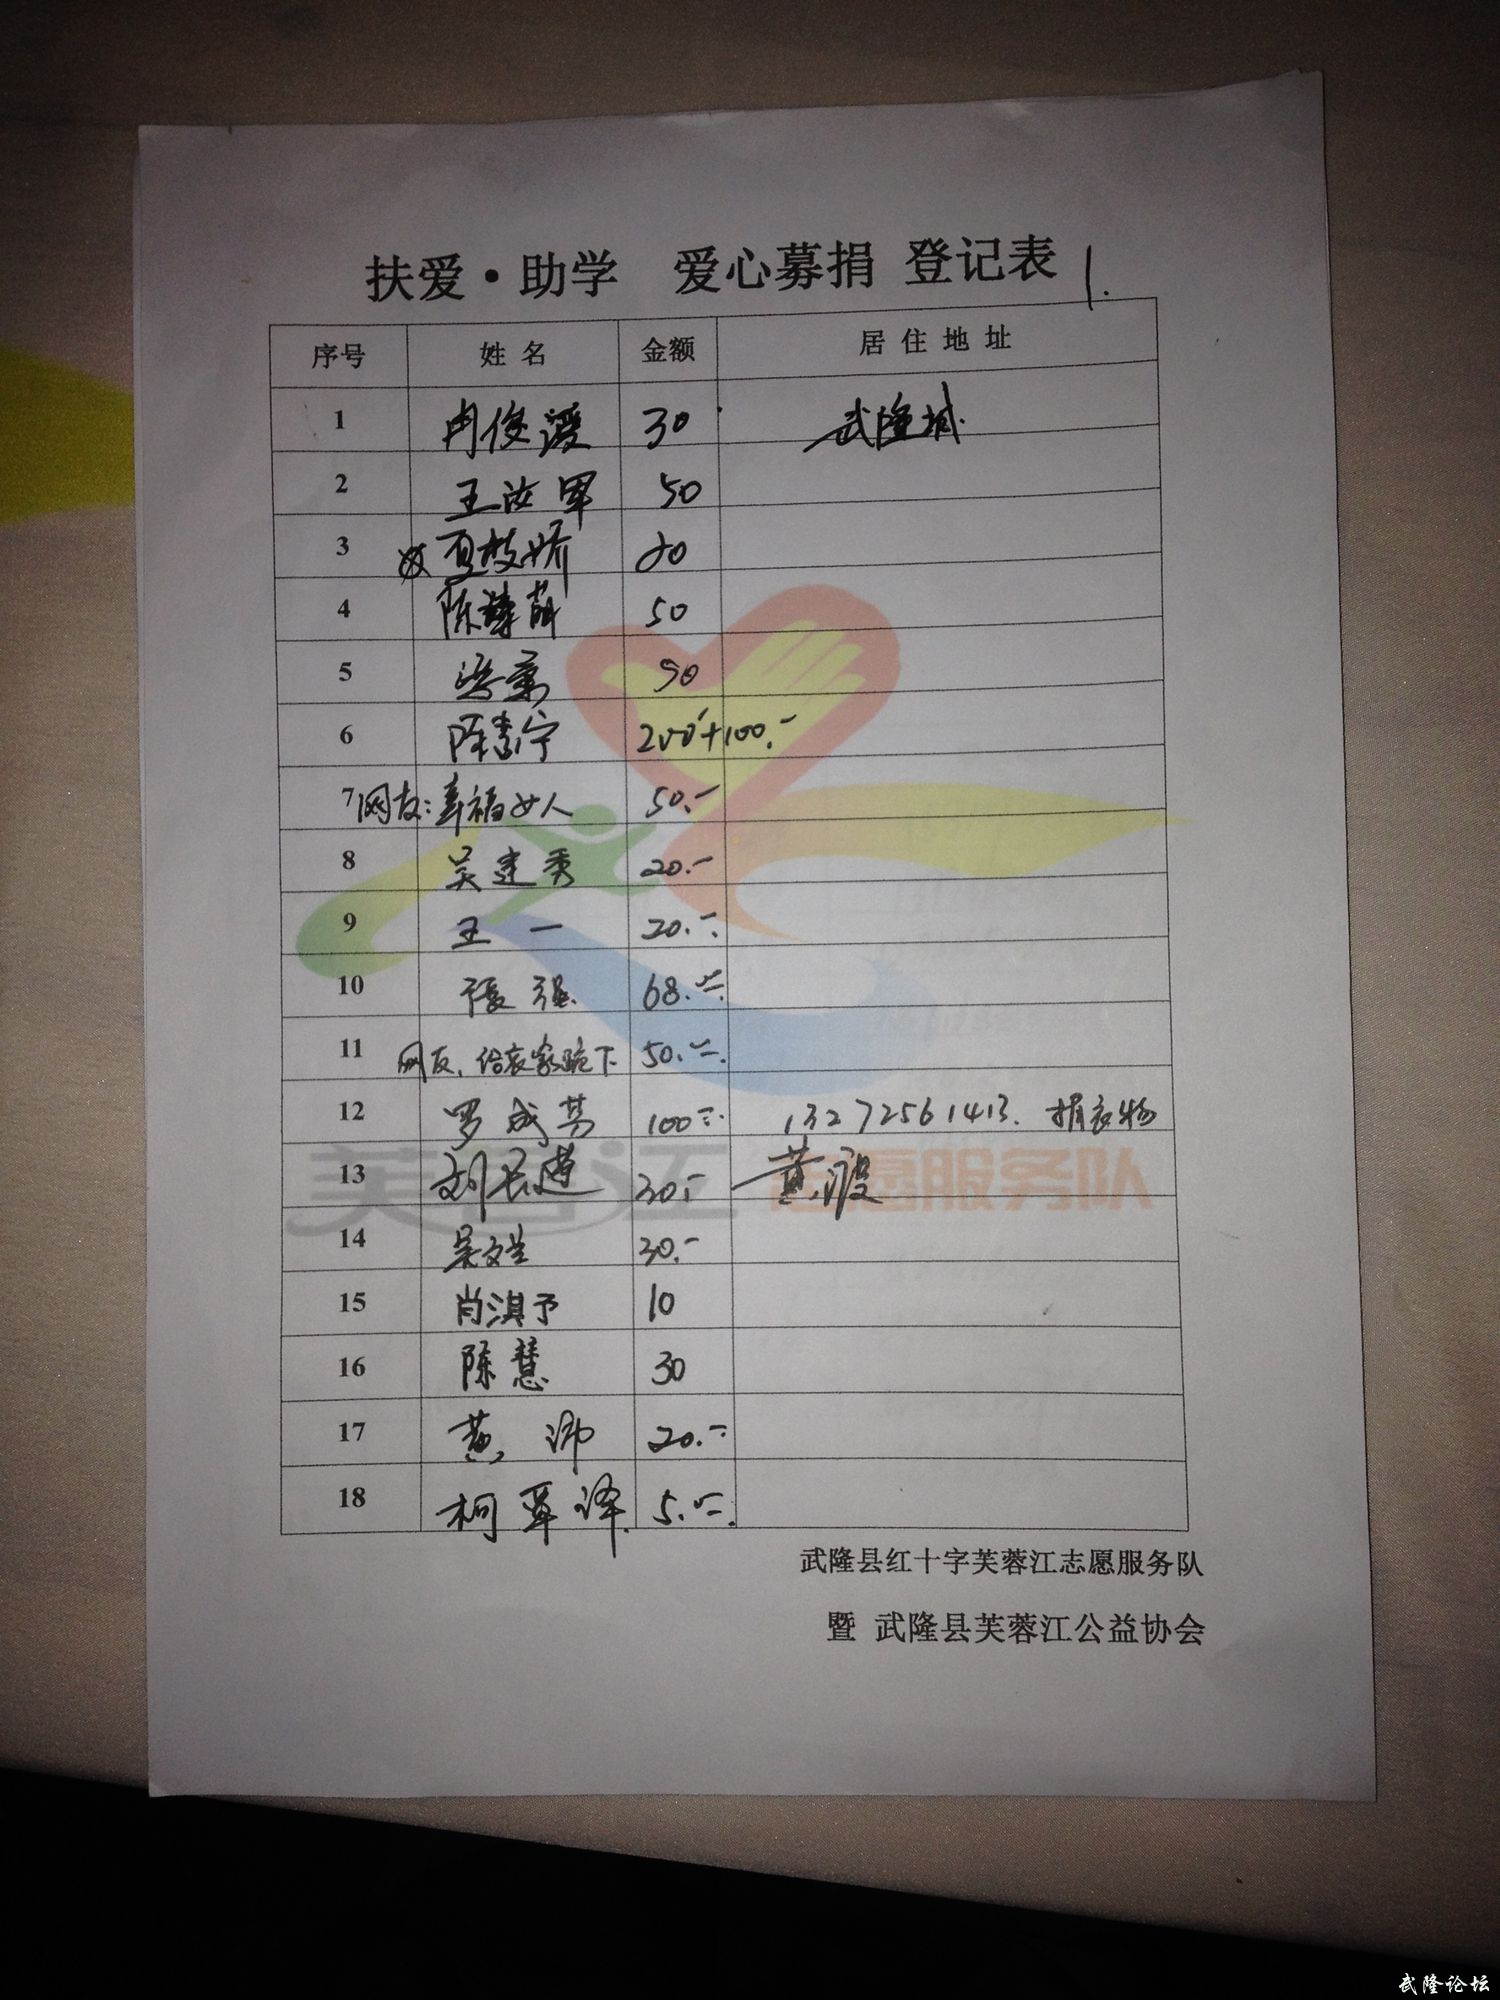 扶爱·助学 爱心募捐 登记表 1.
序号 姓名 金额 居住地址
1 冉俊 30 武隆城
2 王汝军 50
3 夏枝娇
4 陈 萌 50
5 50
6 陈 宁 200+100.-
7 网友:幸福女人 50.-
8 吴建秀 20.-
9 王一 20.-
10 张强 68.-
11 网友、给哀家跪下 50.-
12 罗成 100 13272561413. 捐衣物
13 刘 莲 30.- 黄
14 吴文兰 30.-
15 肖淇予 10
16 陈慧 30
17 黄 20.-
18 柯 泽 5.-
芙蓉江 志愿服务队
武隆县红十字芙蓉江志愿服务队
暨 武隆县芙蓉江公益协会
武隆论坛